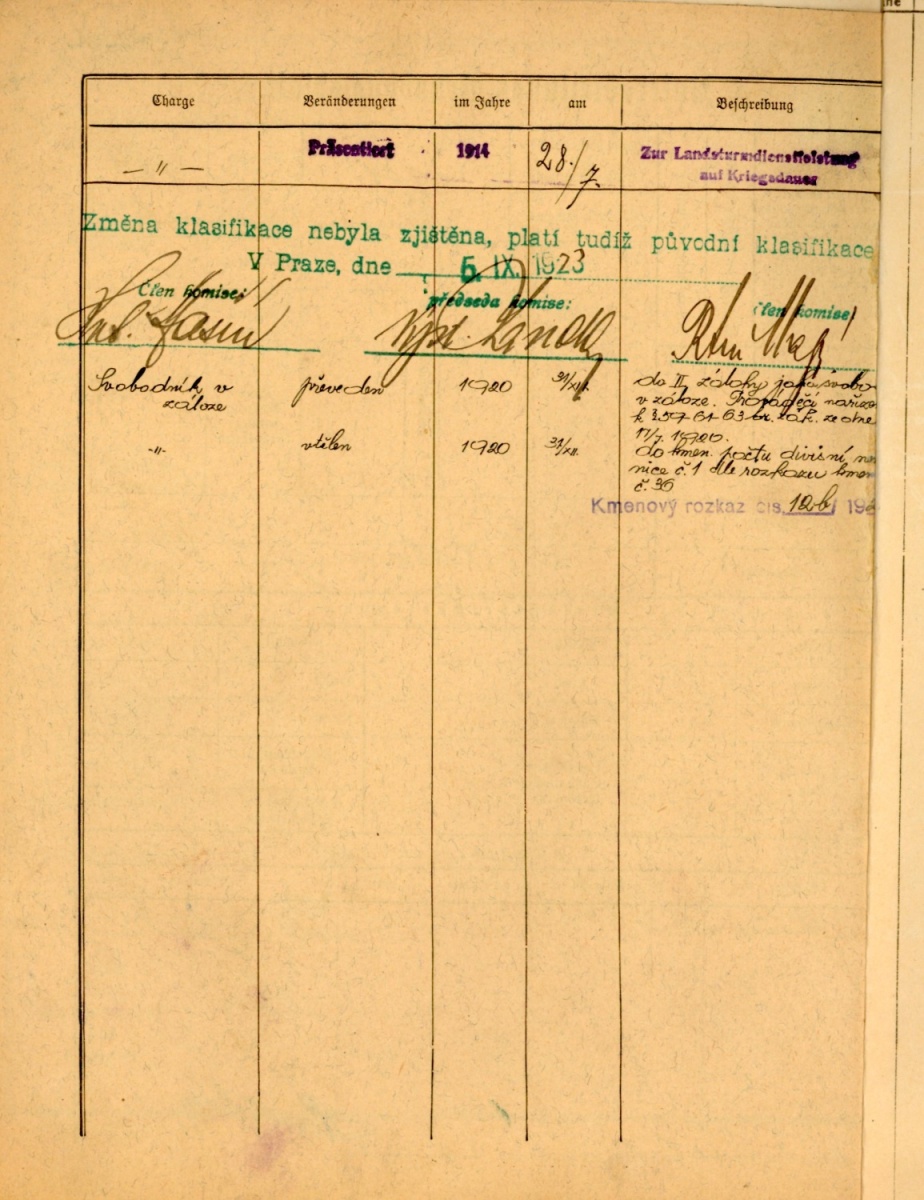 Charge Veränderungen im Jahre am Beschreibung
— " — Präsentiert 1914 28./7. Zur Landsturmdienstleistung
auf Kriegsdauer
Změna klasifikace nebyla zjištěna, platí tudíž původní klasifikace
V Praze, dne 5. IX. 1923
Člen komise: předseda komise: člen komise
Svobodník v převeden 1920 31/XII. do II. zálohy jako svobo
záloze v záloze. Prováděcí nařízo
k § 59 61 63 br. zák. ze dne
17/7. 1920.
-"- vtělen 1920 31/XII. do kmen. počtu divisní ne
nice č. 1 dle rozkazu kmen
č. 36
Kmenový rozkaz čís. 126/ 192